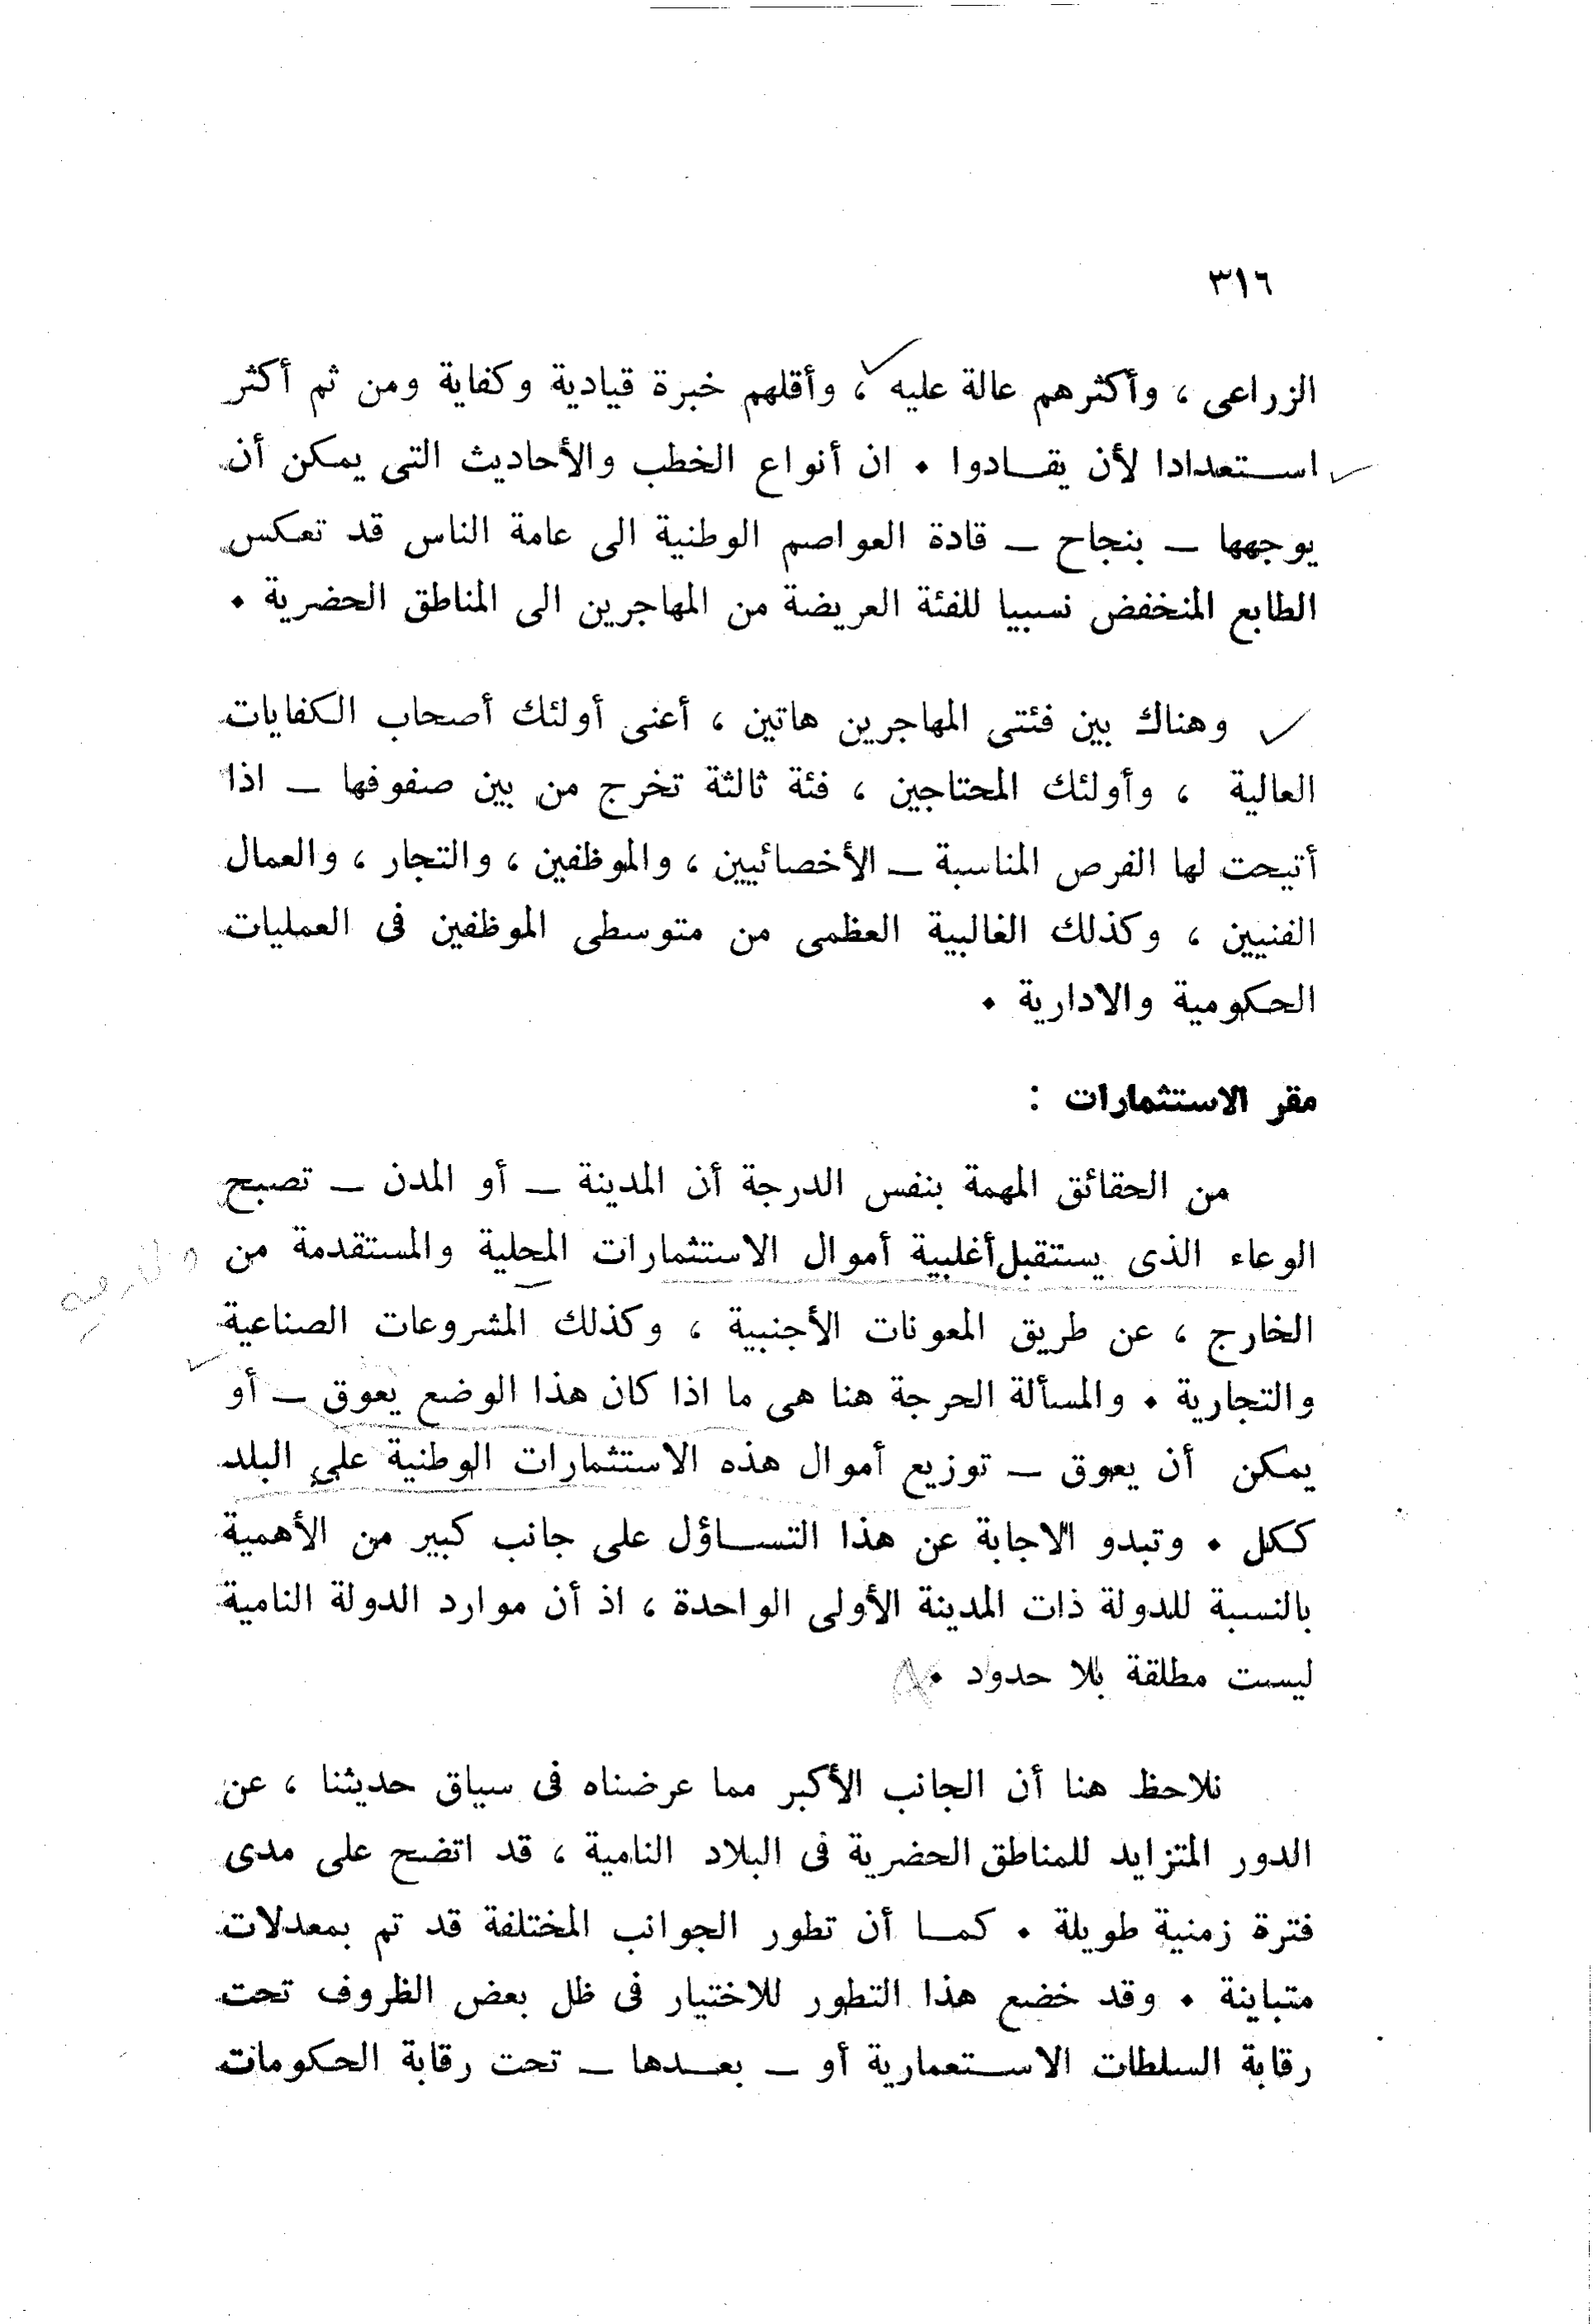 ٣١٦
الزراعى ، وأكثرهم عالة عليه ، وأقلهم خبرة قيادية وكفاية ومن ثم أكثر
استعدادا لأن يقادوا . ان أنواع الخطب والأحاديث التى يمكن أن
يوجهها – بنجاح – قادة العواصم الوطنية الى عامة الناس قد تعكس
الطابع المنخفض نسبيا للفئة العريضة من المهاجرين الى المناطق الحضرية .
وهناك بين فئتى المهاجرين هاتين ، أعنى أولئك أصحاب الكفايات
العالية ، وأولئك المحتاجين ، فئة ثالثة تخرج من بين صفوفها – اذا
أتيحت لها الفرص المناسبة – الأخصائيين ، والموظفين ، والتجار ، والعمال
الفنيين ، وكذلك الغالبية العظمى من متوسطى الموظفين فى العمليات
الحكومية والادارية .
مقر الاستثمارات :
من الحقائق المهمة بنفس الدرجة أن المدينة – أو المدن – تصبح
الوعاء الذى يستقبل أغلبية أموال الاستثمارات المحلية والمستقدمة من
الخارج ، عن طريق المعونات الأجنبية ، وكذلك المشروعات الصناعية
والتجارية . والمسألة الحرجة هنا هى ما اذا كان هذا الوضع يعوق – أو
يمكن أن يعوق – توزيع أموال هذه الاستثمارات الوطنية على البلد
ككل . وتبدو الاجابة عن هذا التساؤل على جانب كبير من الأهمية
بالنسبة للدولة ذات المدينة الأولى الواحدة ، اذ أن موارد الدولة النامية
ليست مطلقة بلا حدود .
نلاحظ هنا أن الجانب الأكبر مما عرضناه فى سياق حديثنا ، عن
الدور المتزايد للمناطق الحضرية فى البلاد النامية ، قد اتضح على مدى
فترة زمنية طويلة . كما أن تطور الجوانب المختلفة قد تم بمعدلات
متباينة . وقد خضع هذا التطور للاختيار فى ظل بعض الظروف تحت
رقابة السلطات الاستعمارية أو – بعدها – تحت رقابة الحكومات